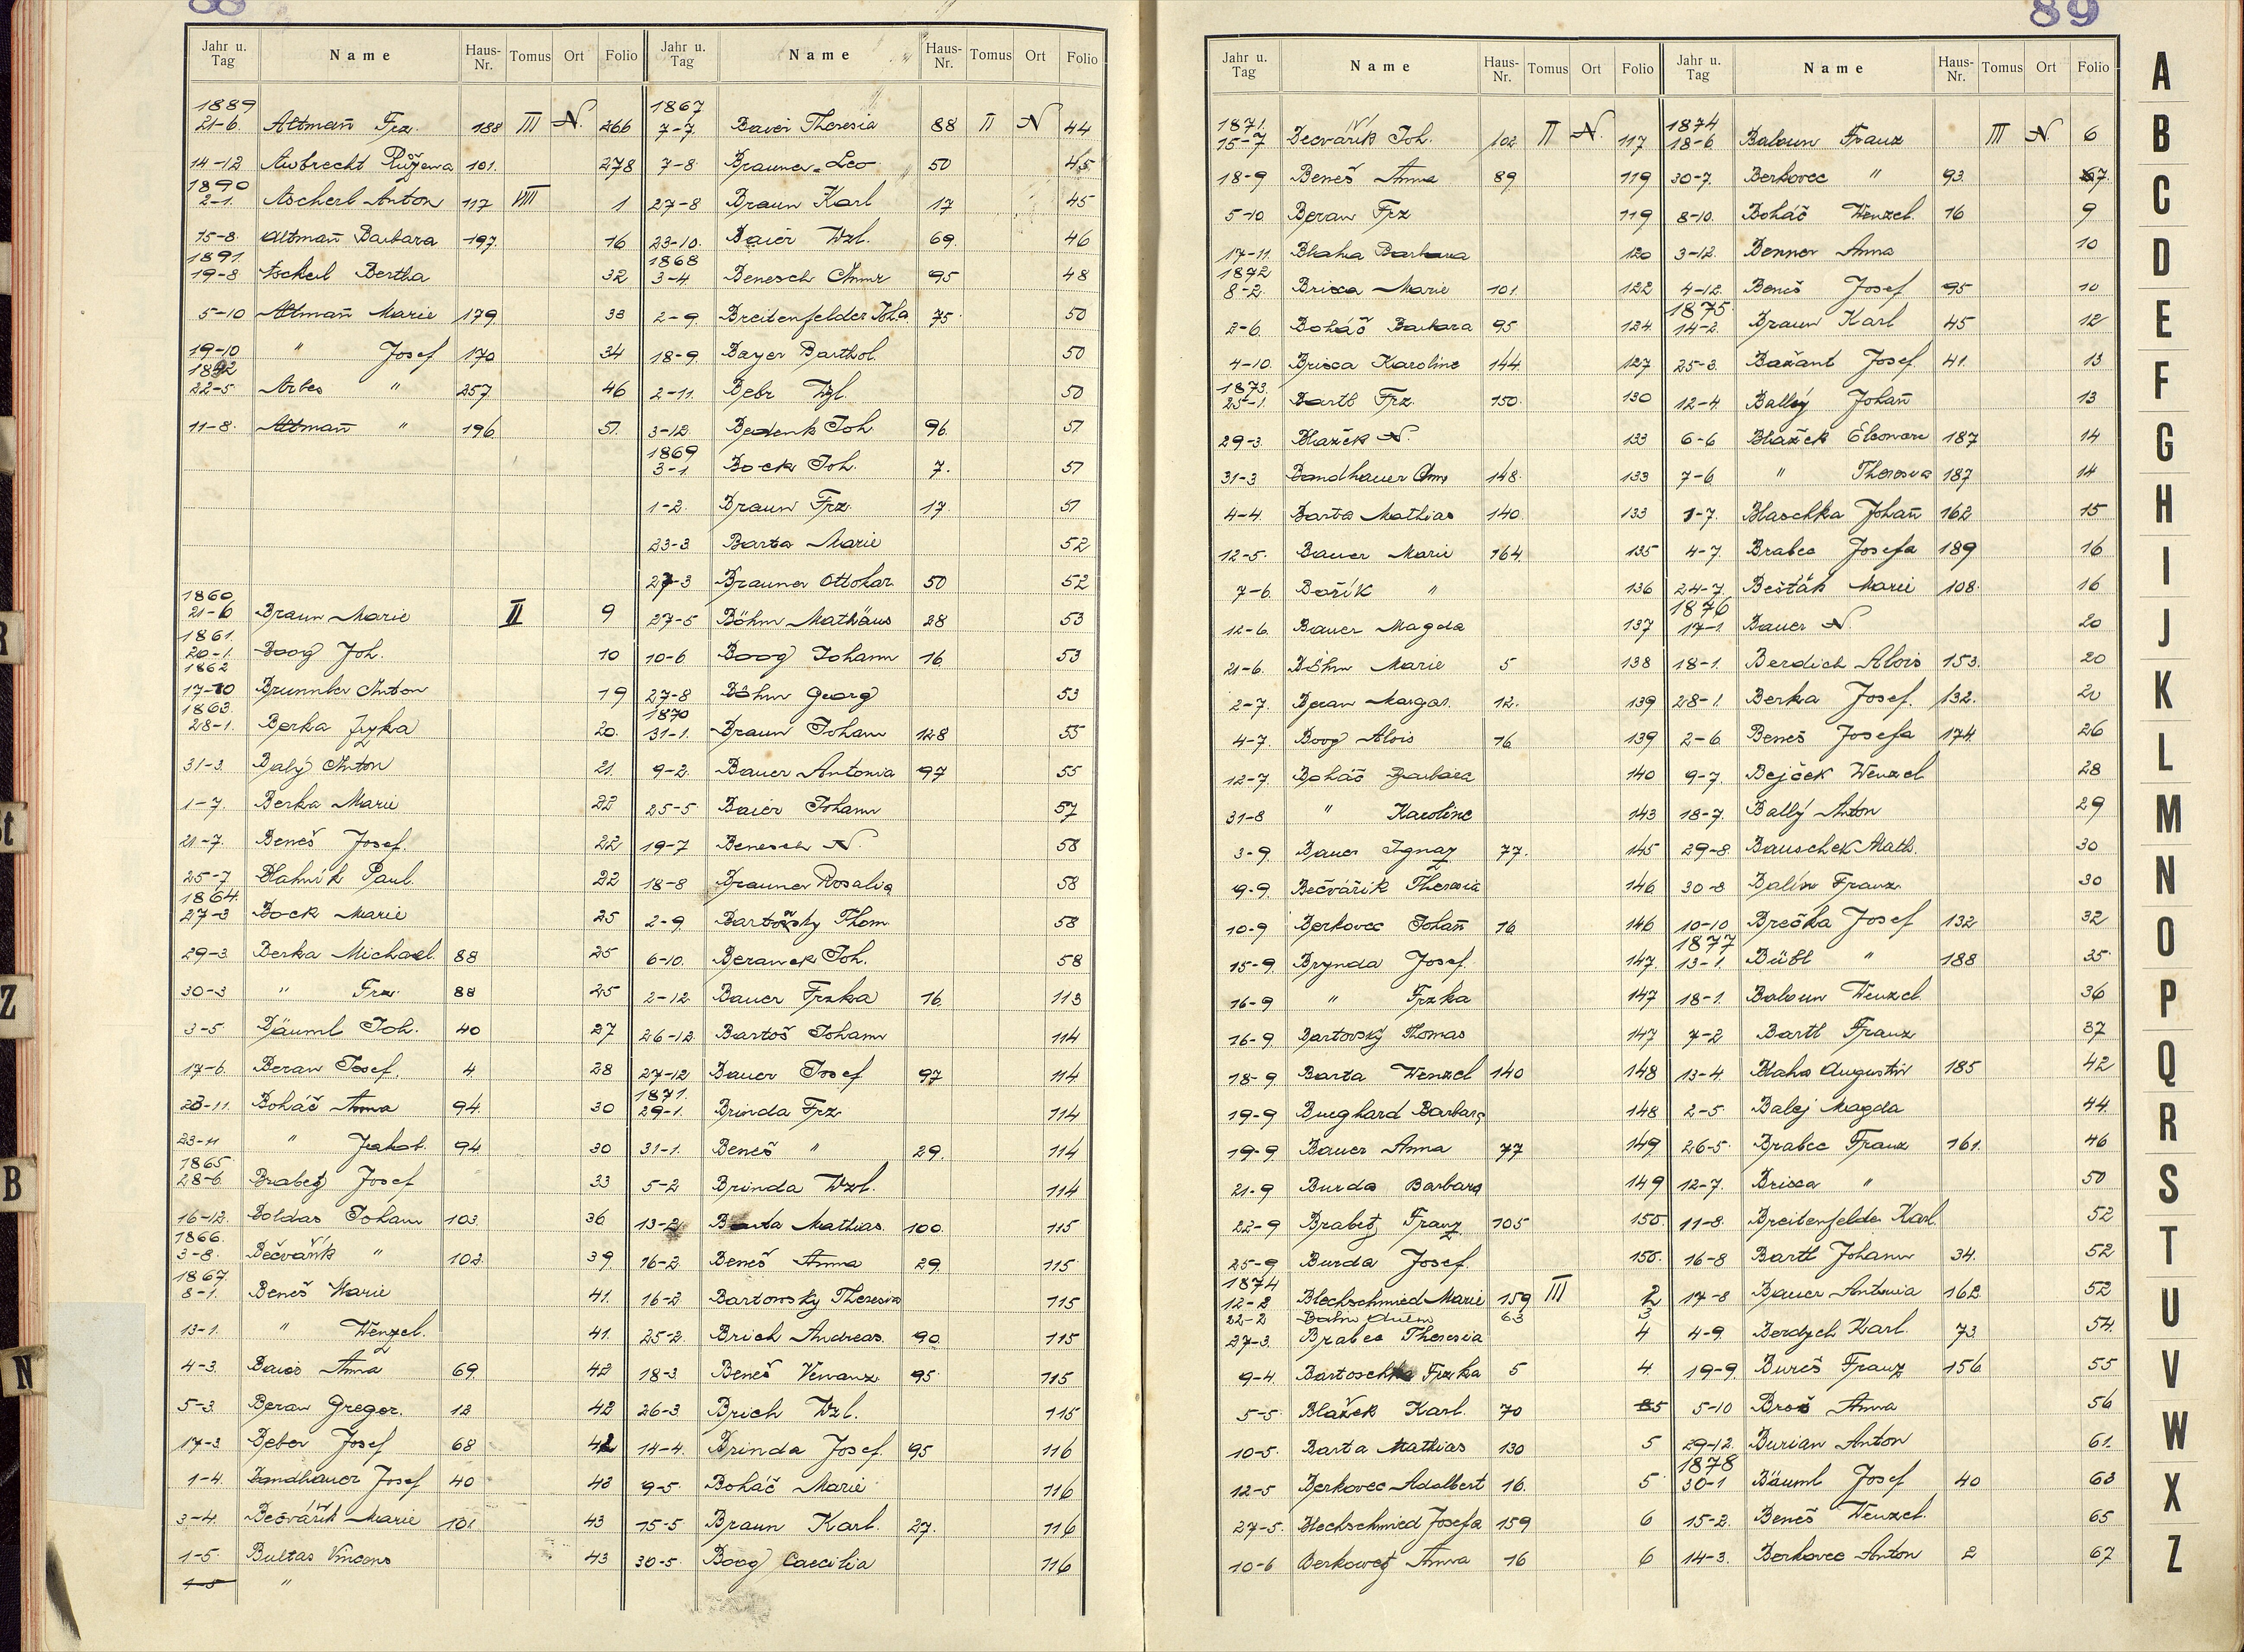 88
Jahr u. Tag Name Haus-Nr. Tomus Ort Folio
1889
21-6. Altmañ Frz. 188 III N. 266
14-12 Aubrecht Růžena 101. 278
1890
2-1. Ascherl Anton 117 VIII 1
15-8. Altmañ Barbara 197. 16
1891.
19-8 Ascherl Bertha 32
5-10 Altmañ Marie 179. 33
19-10 " Josef 170 34
1892
22-5. Arbes " 257 46
11-8. Altmañ " 196. 51.
1860
21-6 Braun Marie II 9
1861.
20-1. Boog Joh. 10
1862
17-10 Brunnler Anton 19
1863.
28-1. Berka Fryka 20.
31-3. Balý Anton 21.
1-7. Berka Marie 22
21-7. Beneš Josef. 22
25-7 Blahnik Paul. 22
1864.
27-3 Bock Marie 25
29-3. Berka Michael. 88 25
30-3 " Frz. 88 25
3-5. Bäuml Joh. 40 27
17-6. Beran Josef. 4 28
23-11. Boháč Anna 94. 30
23-11 " Jakob. 94 30
1865.
28-6. Brabetz Josef 33
16-12. Boldas Johann 103. 36
1866.
3-8. Bečvářík " 102. 39
1867.
8-1. Beneš Marie 41.
13-1. " Wenzel. 41.
4-3. Baier Anna 69. 42
5-3. Beran Gregor. 12 42
17-3 Beber Josef 68 42
1-4. Bandhauer Josef 40 43
3-4. Bečvářik Marie 101. 43
1-5. Bultas Vincens 43
1-5 "
Jahr u. Tag Name Haus-Nr. Tomus Ort Folio
1867
7-7. Baier Theresia 88 II N 44
7-8. Brauner Leo 50 45
27-8 Braun Karl 17 45
23-10. Baier Wzl. 69. 46
1868
3-4. Benesch Anna 95 48
2-9. Breitenfelder Joha 75. 50
18-9. Bayer Barthol. 50
2-11. Bebr Wzl. 50
3-12. Bedenk Joh. 96. 51
1869
3-1. Bock Joh. 7. 51
1-2. Braun Frz. 17. 51
23-3. Barta Marie 52
27-3 Brauner Ottokar 50 52
27-5 Böhm Mathäus 28 53
10-6. Boog Johann 16. 53
27-8 Böhm Georg 53
1870
31-1. Braun Johann 128 55
9-2. Bauer Antonia 97 55
25-5 Baier Johann 57
19-7 Benesch N. 58
18-8 Brauner Rosalia 58
2-9. Bartovsky Thom. 58
6-10. Beranek Joh. 58
2-12. Bauer Frzka 16. 113
26-12. Bartoš Johann 114
27-12 Bauer Josef 97 114
1871.
29-1. Brinda Frz. 114
31-1. Beneš " 29. 114
5-2 Brinda Wzl. 114
13-2 Barta Mathias. 100. 115
16-2. Beneš Anna 29. 115
16-2 Bartowsky Theresia 115
25-2. Brich Andreas. 90. 115
18-3. Beneš Venanz. 95 115
26-3. Brich Wzl. 115
14-4. Brinda Josef. 95 116
9-5. Boháč Marie 116
15-5. Braun Karl. 27. 116
30-5. Boog Caecilia 116
89
Jahr u. Tag Name Haus-Nr. Tomus Ort Folio
1871.
15-7 Becvářik Joh. 102. II N. 117
18-9 Beneš Anna 89 119
5-10 Beran Frz 119
17-11. Blaha Barbara 120
1872
8-2. Brixa Marie 101. 122
2-6. Boháč Barbara 95 124
4-10. Brixa Karoline 144. 127
1873.
25-1. Bartl Frz. 150. 130
29-3. Blažek N. 133
31-3 Bandhauer Ann 148. 133
4-4. Barta Mathias 140. 133
12-5. Bauer Marie 164. 135
7-6. Bařík " 136
12-6. Bauer Magda 137
21-6. Böhm Marie 5 138
2-7. Beran Margar. 12. 139
4-7. Boog Alois 16 139
12-7. Boháč Barbara 140
31-8 " Karoline 143
3-9. Bauer Ignaz 77. 145
9-9. Bečvářik Theresia 146
10-9 Berkovec Johañ 16. 146
15-9. Brynda Josef. 147.
16-9 " Frzka 147
16-9. Bartovský Thomas 147
18-9. Barta Wenzel 140 148
19-9 Burghard Barbara 148
19-9. Bauer Anna 77 149
21-9 Burda Barbara 149
22-9 Brabetz Franz 105 150.
25-9 Burda Josef. 150.
1874
12-2 Blechschmied Marie 159 III 2
22-2 63 3
27-3. Brabec Theresia 4
9-4. Bartoschka Frzka 5 4.
5-5. Blažek Karl. 70 5
10-5. Barta Mathias 130 5
12-5 Berkovec Adalbert 16. 5
27-5. Blechschmied Josefa 159 6
10-6 Berkowetz Anna 16 6
Jahr u. Tag Name Haus-Nr. Tomus Ort Folio
1874
18-6. Baloun Franz III N. 6
30-7. Berkovec " 93. 7.
8-10. Boháč Wenzel 16 9
3-12. Benner Anna 10
4-12. Beneš Josef 95 10
1875.
14-2. Braun Karl 45 12
25-3. Bažant Josef 41. 13
12-4. Ballý Johañ 13
6-6 Blažek Eleonore 187 14
7-6. " Theresia 187 14
1-7. Blaschka Johañ 162 15
4-7. Brabec Josefa 189 16
24-7. Bešták Marie 108. 16
1876
17-1. Bauer N. 20
18-1. Berdich Alois 153. 20
28-1. Berka Josef. 132. 20
2-6. Beneš Josefa 174. 26
9-7. Bejček Wenzel 28
18-7. Ballý Anton 29
29-8. Bauschek Math. 30
30-8 Balín Franz. 30
10-10 Brečka Josef 132 32
1877
13-1. Bübl " 188 35.
18-1. Baloun Wenzel 36
7-2 Bartl Franz 37
13-4. Blaha Augustin 185 42
2-5. Balej Magda 44.
26-5. Brabec Franz 161. 46
12-7. Brixa " 50
11-8. Breitenfelder Karl. 52
16-8 Bartl Johann 34. 52
17-8 Bauer Antonia 162 52
4-9. Berdych Karl. 73 54.
19-9. Bureš Franz 156. 55
5-10 Brož Anna 56
29-12. Burian Anton 61.
1878
30-1 Bäuml Josef 40 63
15-2. Beneš Wenzel. 65
14-3. Berkovec Anton 2 67
A
B
C
D
E
F
G
H
I
J
K
L
M
N
O
P
Q
R
S
T
U
V
W
X
Z
R
St
Z
B
N